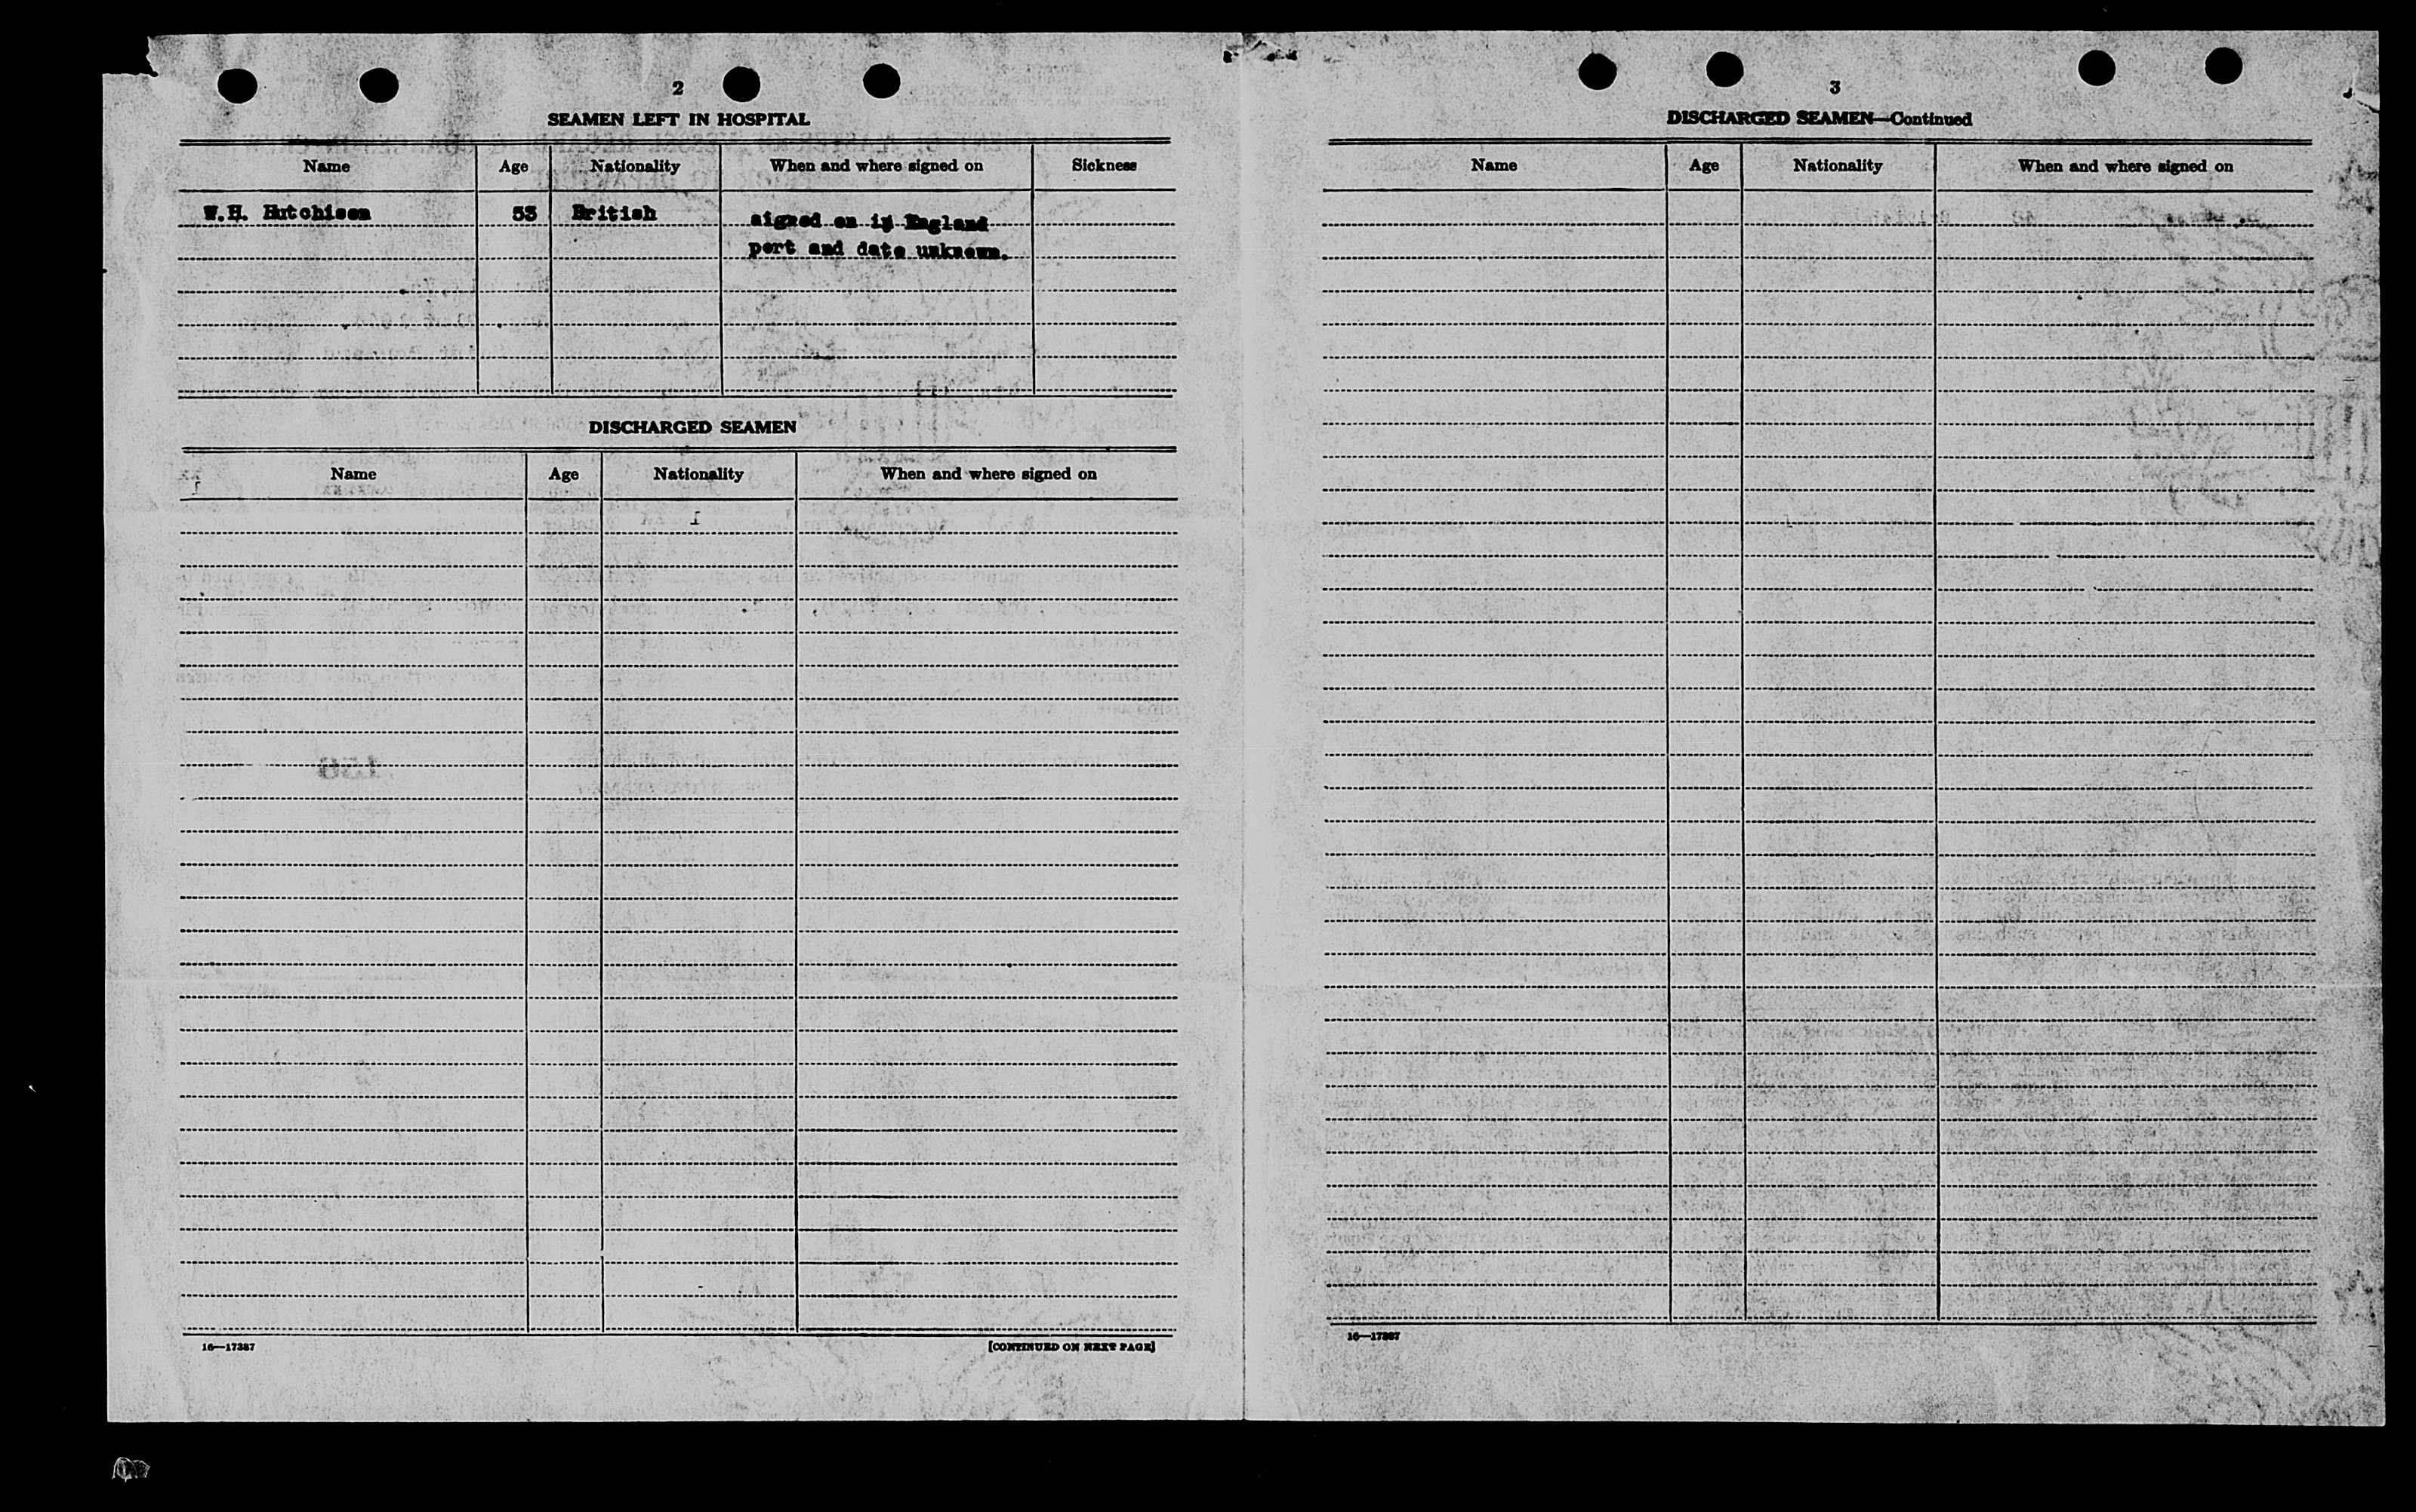 2
SEAMEN LEFT IN HOSPITAL
Name Age Nationality When and where signed on Sickness
W.H. Hutchison 53 British signed on in England
port and date unknown.
DISCHARGED SEAMEN
Name Age Nationality When and where signed on
16—17387 [CONTINUED ON NEXT PAGE]
3
DISCHARGED SEAMEN—Continued
Name Age Nationality When and where signed on
16—17387